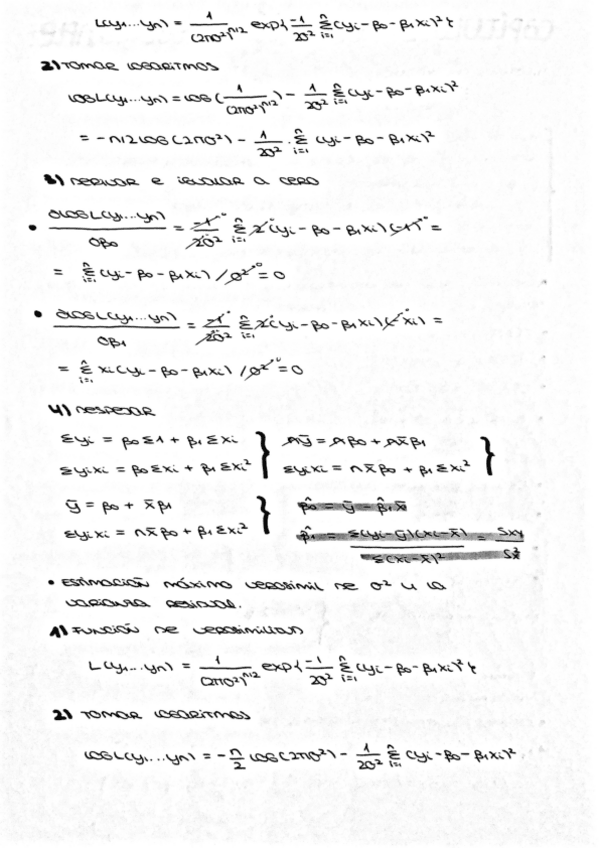 L(y₁...yn) = 1/(2πσ²)^n/2 exp{-1/2σ² Σⁿᵢ₌₁ (yi - β₀ - β₁xi)²}
2) TOMAR LOGARITMOS
LOG L(y₁...yn) = LOG (1/(2πσ²)^n/2) - 1/2σ² Σⁿᵢ₌₁ (yi - β₀ - β₁xi)²
= -n/2 LOG (2πσ²) - 1/2σ² · Σⁿᵢ₌₁ (yi - β₀ - β₁xi)²
3) DERIVAR E IGUALAR A CERO
• ∂LOG L(y₁...yn)/∂β₀ = -1/2σ² Σⁿᵢ₌₁ 2(yi - β₀ - β₁xi)(-1) =
= Σⁿᵢ₌₁ (yi - β₀ - β₁xi) / σ² = 0
• ∂LOG L(y₁...yn)/∂β₁ = -1/2σ² Σⁿᵢ₌₁ 2(yi - β₀ - β₁xi)(-xi) =
= Σⁿᵢ₌₁ xi(yi - β₀ - β₁xi) / σ² = 0
4) DESPEJAR
Σyi = β₀Σ1 + β₁Σxi } nȳ = nβ₀ + nx̄β₁ }
Σyixi = β₀Σxi + β₁Σxi² Σyixi = nx̄β₀ + β₁Σxi²
ȳ = β₀ + x̄β₁ } β̂₀ = ȳ - β̂₁x̄
Σyixi = nx̄β₀ + β₁Σxi² β̂₁ = Σ(yi-ȳ)(xi-x̄)/Σ(xi-x̄)² = Sxy/Sx²
• ESTIMACIÓN MÁXIMO VEROSIMIL DE σ² Y LA
VARIANZA RESIDUAL.
1) FUNCIÓN DE VEROSIMILITUD
L(y₁...yn) = 1/(2πσ²)^n/2 exp{-1/2σ² Σⁿᵢ₌₁ (yi - β₀ - β₁xi)²}
2) TOMAR LOGARITMOS
LOG L(y₁...yn) = -n/2 LOG (2πσ²) - 1/2σ² Σⁿᵢ₌₁ (yi - β₀ - β₁xi)²